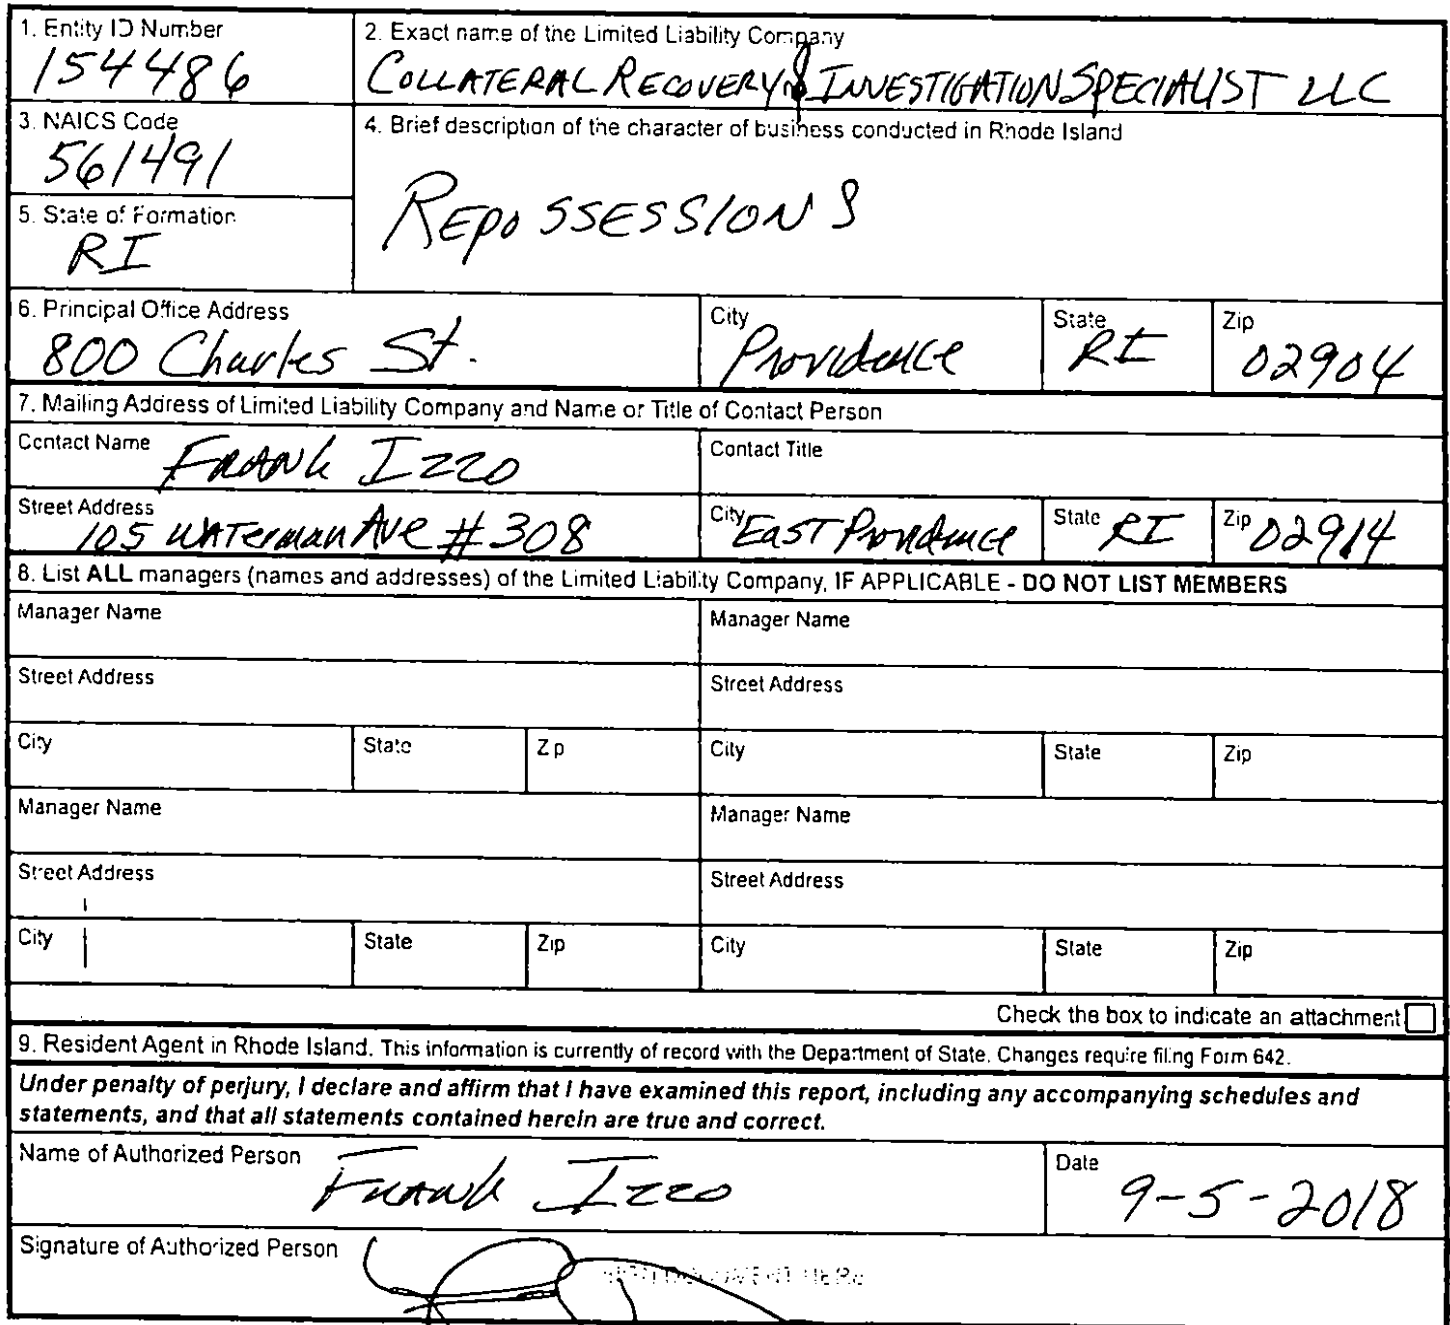 1. Entity ID Number
154486
2. Exact name of the Limited Liability Company
COLLATERAL RECOVERY & INVESTIGATION SPECIALIST LLC
3. NAICS Code
561491
4. Brief description of the character of business conducted in Rhode Island
REPOSSESSIONS
5. State of Formation
RI
6. Principal Office Address
800 Charles St.
City
Providence
State
RI
Zip
02904
7. Mailing Address of Limited Liability Company and Name or Title of Contact Person
Contact Name
FRANK IZZO
Contact Title
Street Address
105 WATerman Ave #308
City
EAST Providence
State
RI
Zip
02914
8. List ALL managers (names and addresses) of the Limited Liability Company, IF APPLICABLE - DO NOT LIST MEMBERS
Manager Name
Manager Name
Street Address
Street Address
City State Zip City State Zip
Manager Name
Manager Name
Street Address
Street Address
City State Zip City State Zip
Check the box to indicate an attachment
9. Resident Agent in Rhode Island. This information is currently of record with the Department of State. Changes require filing Form 642.
Under penalty of perjury, I declare and affirm that I have examined this report, including any accompanying schedules and
statements, and that all statements contained herein are true and correct.
Name of Authorized Person
FRANK IZZO
Date
9-5-2018
Signature of Authorized Person